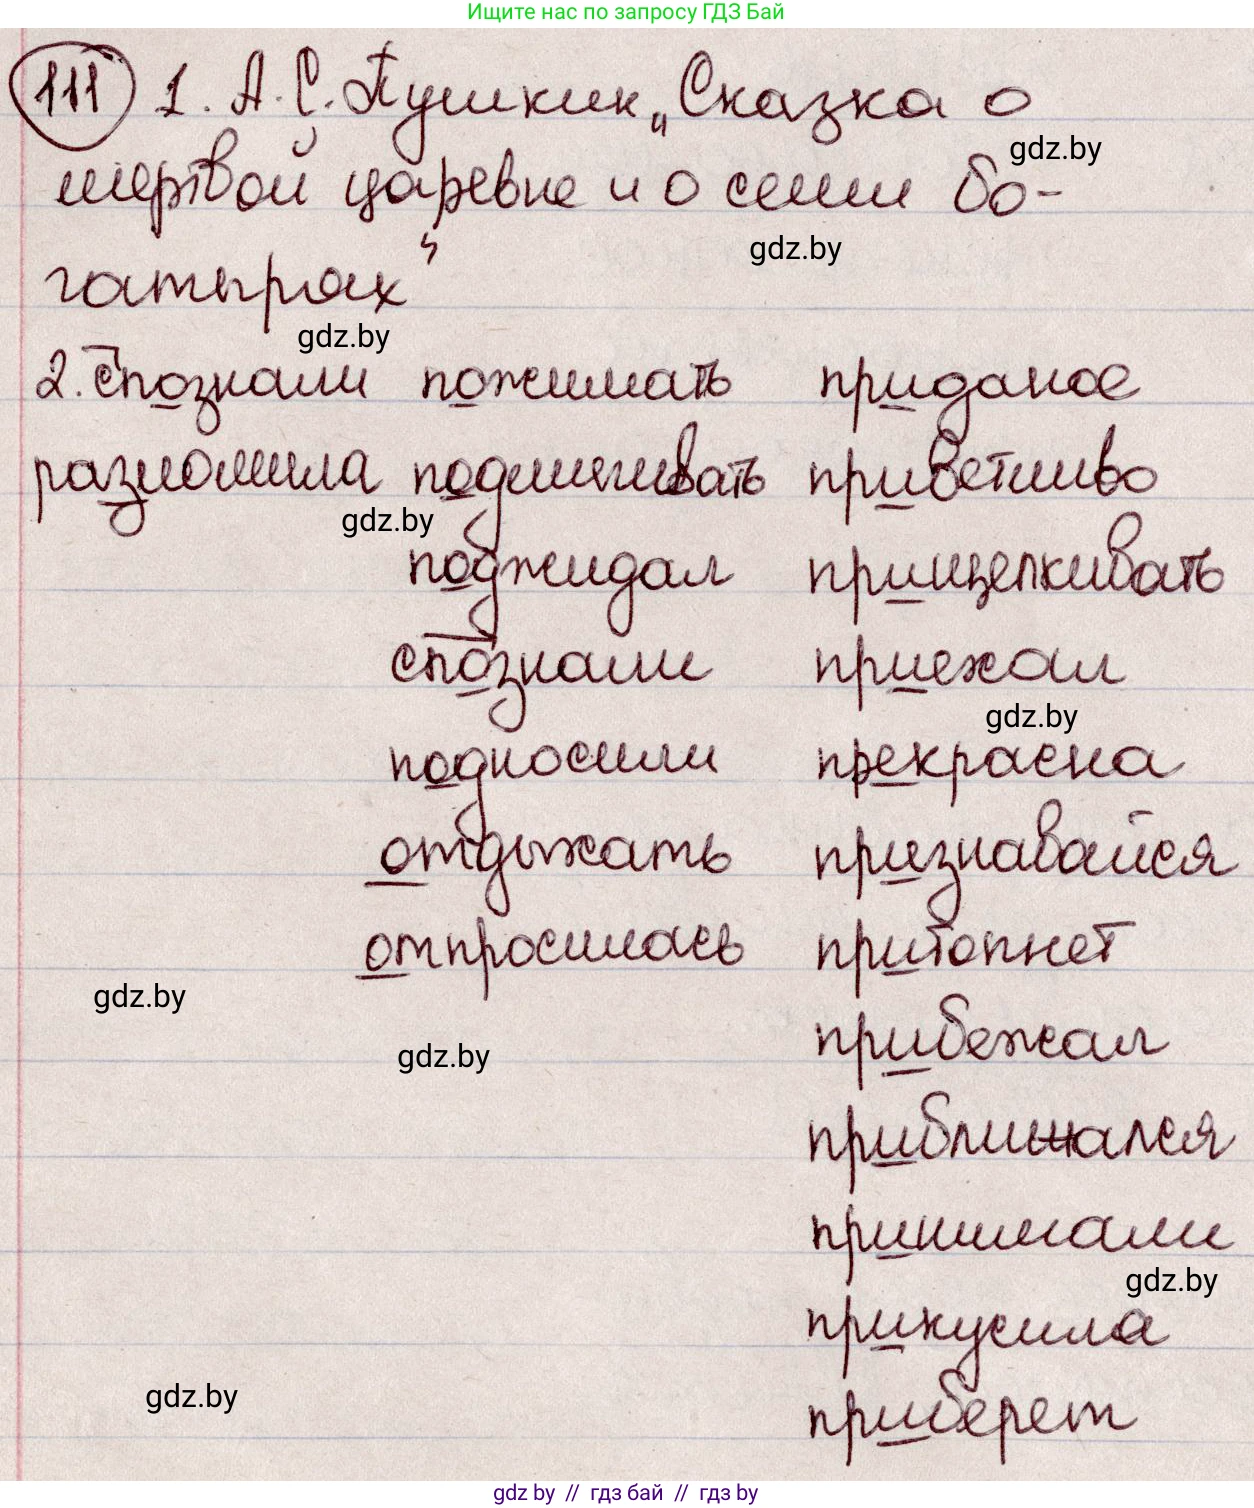 Ищите нас по запросу ГДЗ Бай
111 1. А. С. Пушкин „Сказка о
gdz.by
мертвой царевне и о семи бо-
gdz.by
гатырях“
gdz.by
2. спознали пожимать приданое
разломила подмигивать приветливо
gdz.by
поджидал прищелкивать
спознали приехал
gdz.by
подносили прекрасна
отдыхать признавайся
отпросилась притопнет
gdz.by
прибежал
gdz.by
приближался
принимали
gdz.by
прикусила
gdz.by
приберет
gdz.by // гдз бай // гдз by